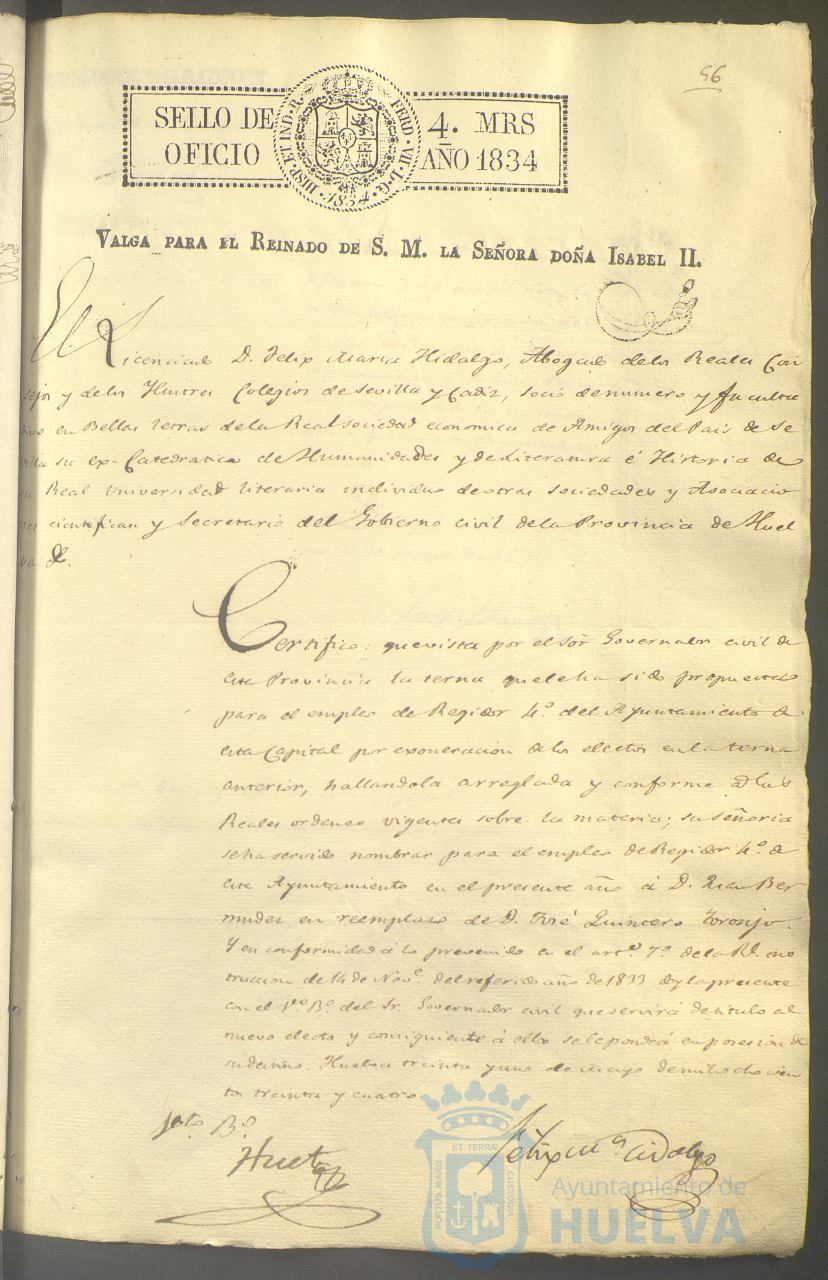 56
SELLO DE OFICIO
HISP. ET IND. R. FERD. VII. D. G. 1834.
4. MRS
AÑO 1834
VALGA PARA EL REINADO DE S. M. LA SEÑORA DOÑA ISABEL II.
El Licenciado D. Felix Maria Hidalgo, Abogado delos Reales Con
sejos y delos Ilustres Colegios de Sevilla y Cadiz, socio denumero y faculta
tivo en Bellas letras dela Real sociedad economica de Amigos del Pais de Se
villa su ex-Catedratico de Humanidades y deLiteratura é Historia de
su Real Universidad literaria individuo deotras sociedades y Asociacio
nes cientificas y Secretario del Gobierno civil dela Provincia de Huel
va &.
Certifico: quevista por el Sor Governador civil de
esta Provincia la terna quele ha sido propuesta
para el empleo de Regidor 4.º del Ayuntamiento de
esta Capital por exoneracion delos electos enla terna
anterior, hallandola arreglada y conforme á las
Reales ordenes vigentes sobre la materia; su señoria
seha servido nombrar para el empleo deRegidor 4.º de
este Ayuntamiento en el presente año á D. Ber
mudez en reemplazo de D. José Quintero Toronjo.
Y en conformidad á lo prevenido en el artº. 7.º dela Rl. ins
truccion de 14 de Nov.e delreferido año de 1833 doy lapresente
con el V.to B.º del Sr. Governador civil queservirá detitulo al
nuevo electo y consiguiente á ello sele pondrá en posesion de
sudestino. Huelva treinta yuno de mayo demilochocien
tos treinta y cuatro
V.to B.º
Huet
Felix M.a Hidalgo
PORTUS MARIS ET TERRAE CUSTODIA
Ayuntamiento de
HUELVA